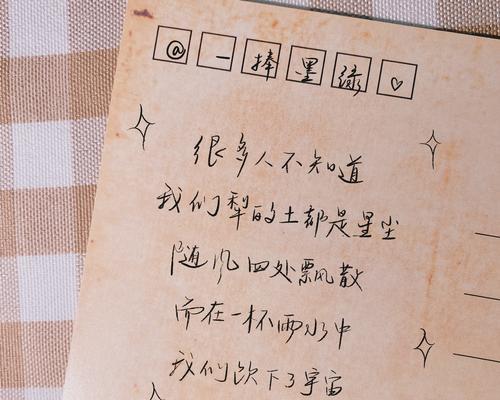 @一捧墨绿♡
很多人不知道
我们犁的土都是星尘
随风四处飘散
而在一杯雨水中
我们饮下了宇宙